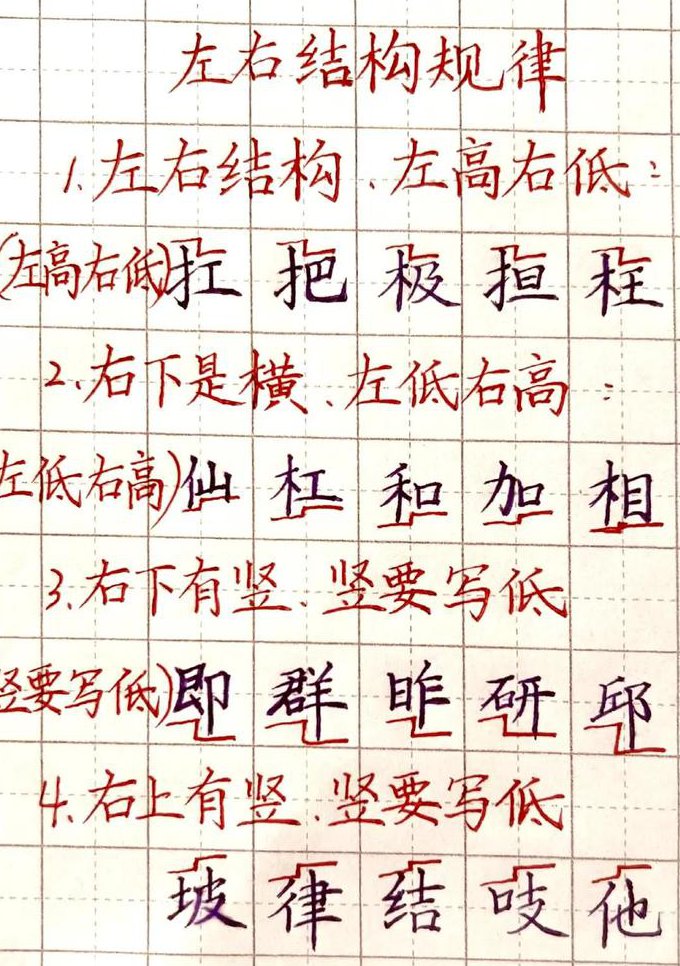 左右结构规律
1.左右结构、左高右低：
(左高右低)扛 把 极 担 枉
2.右下是横、左低右高：
左低右高)仙 杠 和 加 相
3.右下有竖、竖要写低
竖要写低)即 群 昨 研 邱
4.右上有竖、竖要写低
坡 律 结 吱 他